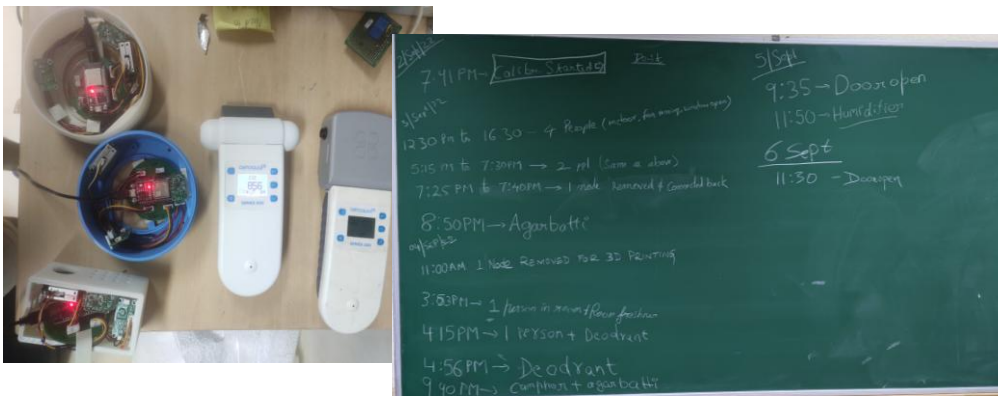 aeroqual
056
aeroqual
2/Sept/22
7:41 PM - Calibr Started
3/Sept/22
12:30 Pm to 16:30 - 4 People (indoor, fan on, window open)
5:15 PM to 7:30PM → 2 ppl (Same as above)
7:25 PM to 7:40PM → 1 node removed & Connected back
8:50PM → Agarbatti
04/Sep/22
11:00AM 1 Node REMOVED FOR 3D PRINTING
3:53PM → 1 person in room + Room freshner
4:15PM → 1 Person + Deodrant
4:56 PM → Deodrant
9:40 PM → Camphor + agarbatti
5/Sept
9:35 → Door open
11:50 → Humidifier
6 Sept
11:30 - Dooropen